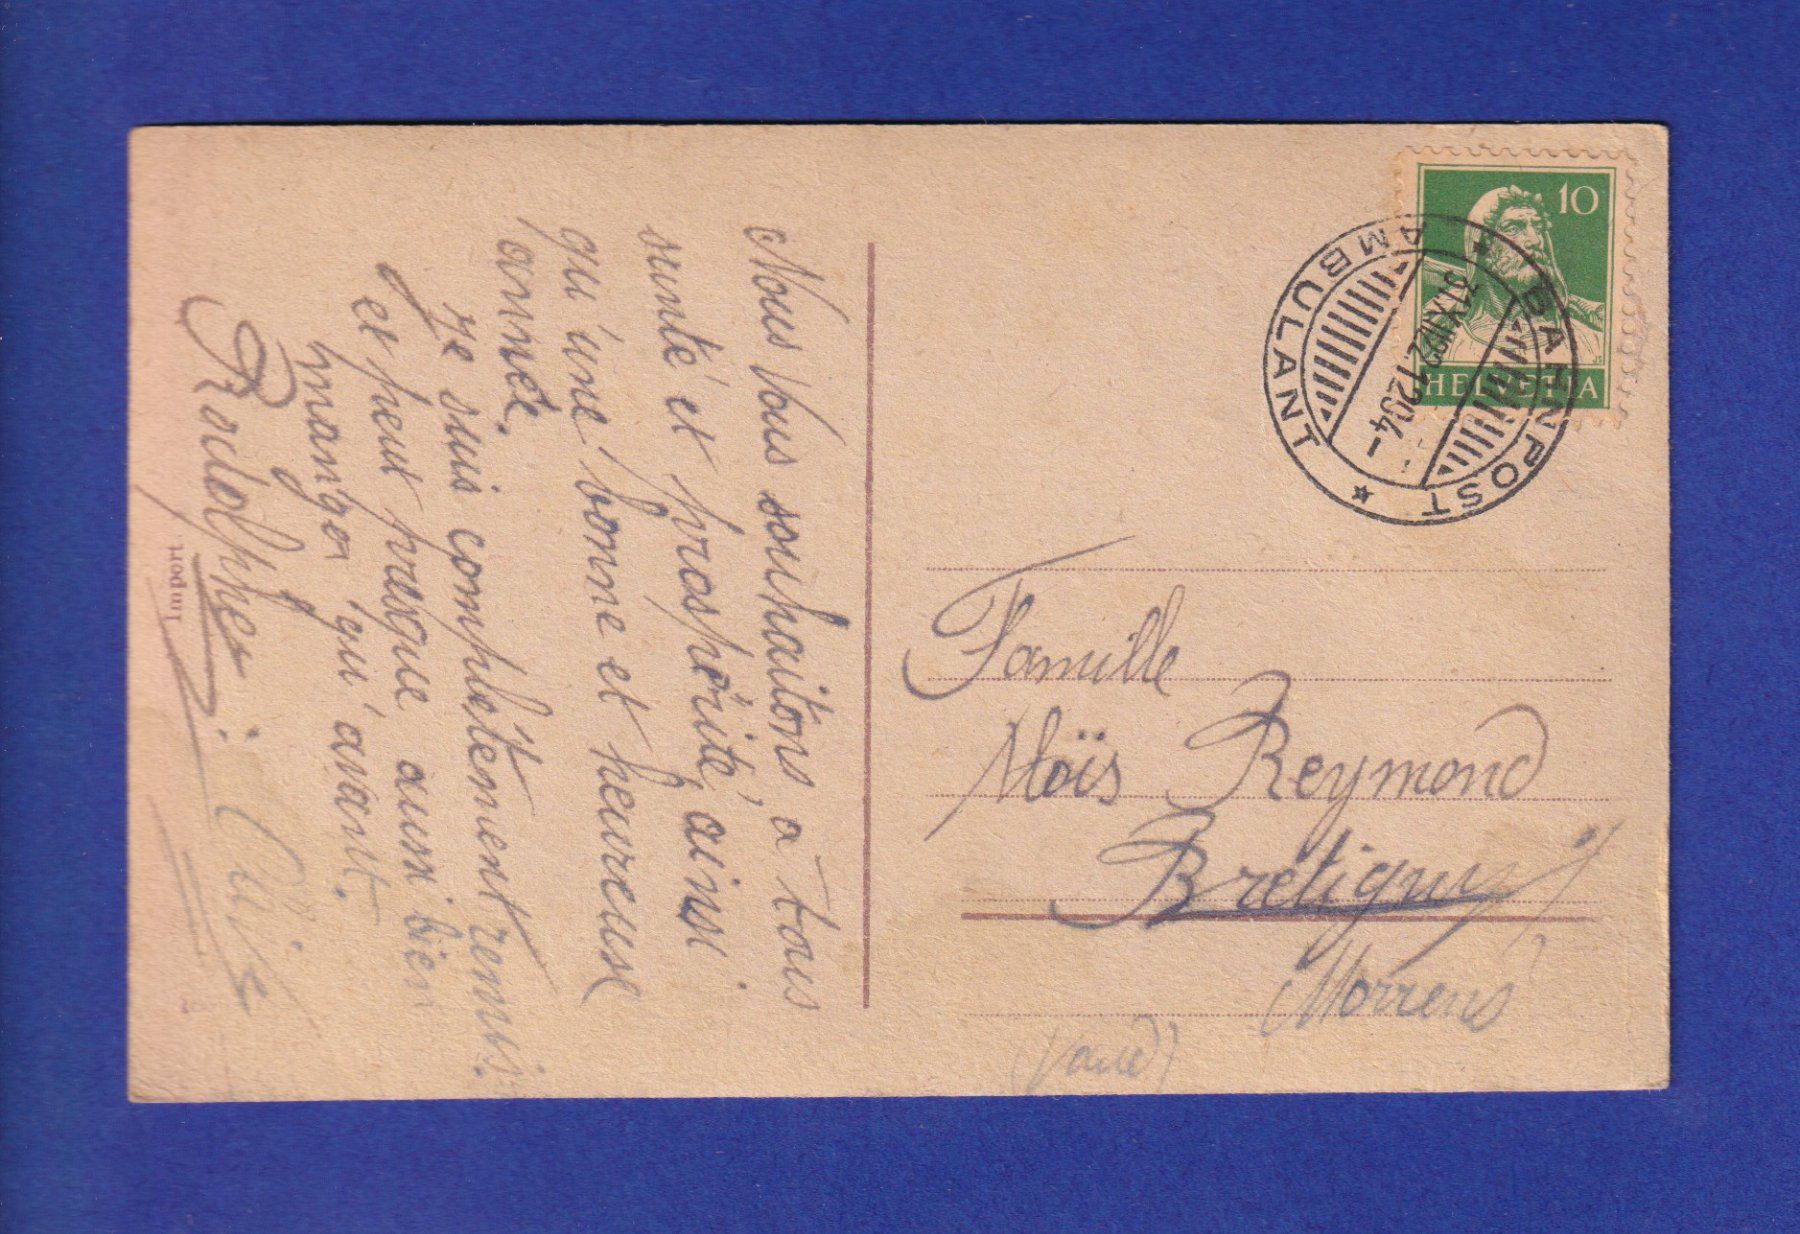 Nous Vous souhaitons a tous
santé et prospérité, ainsi
qu'une bonne et heureuse
année.
Je suis complétement remi.
et peux presque aussi bien
manger qu'avant.
Rodolphe
Import.
10
HELVETIA
BAHNPOST
AMBULANT
31.XII.22 1204
Famille
Moïs Reymond
Brétigny s/
Morrens
(Vaud)